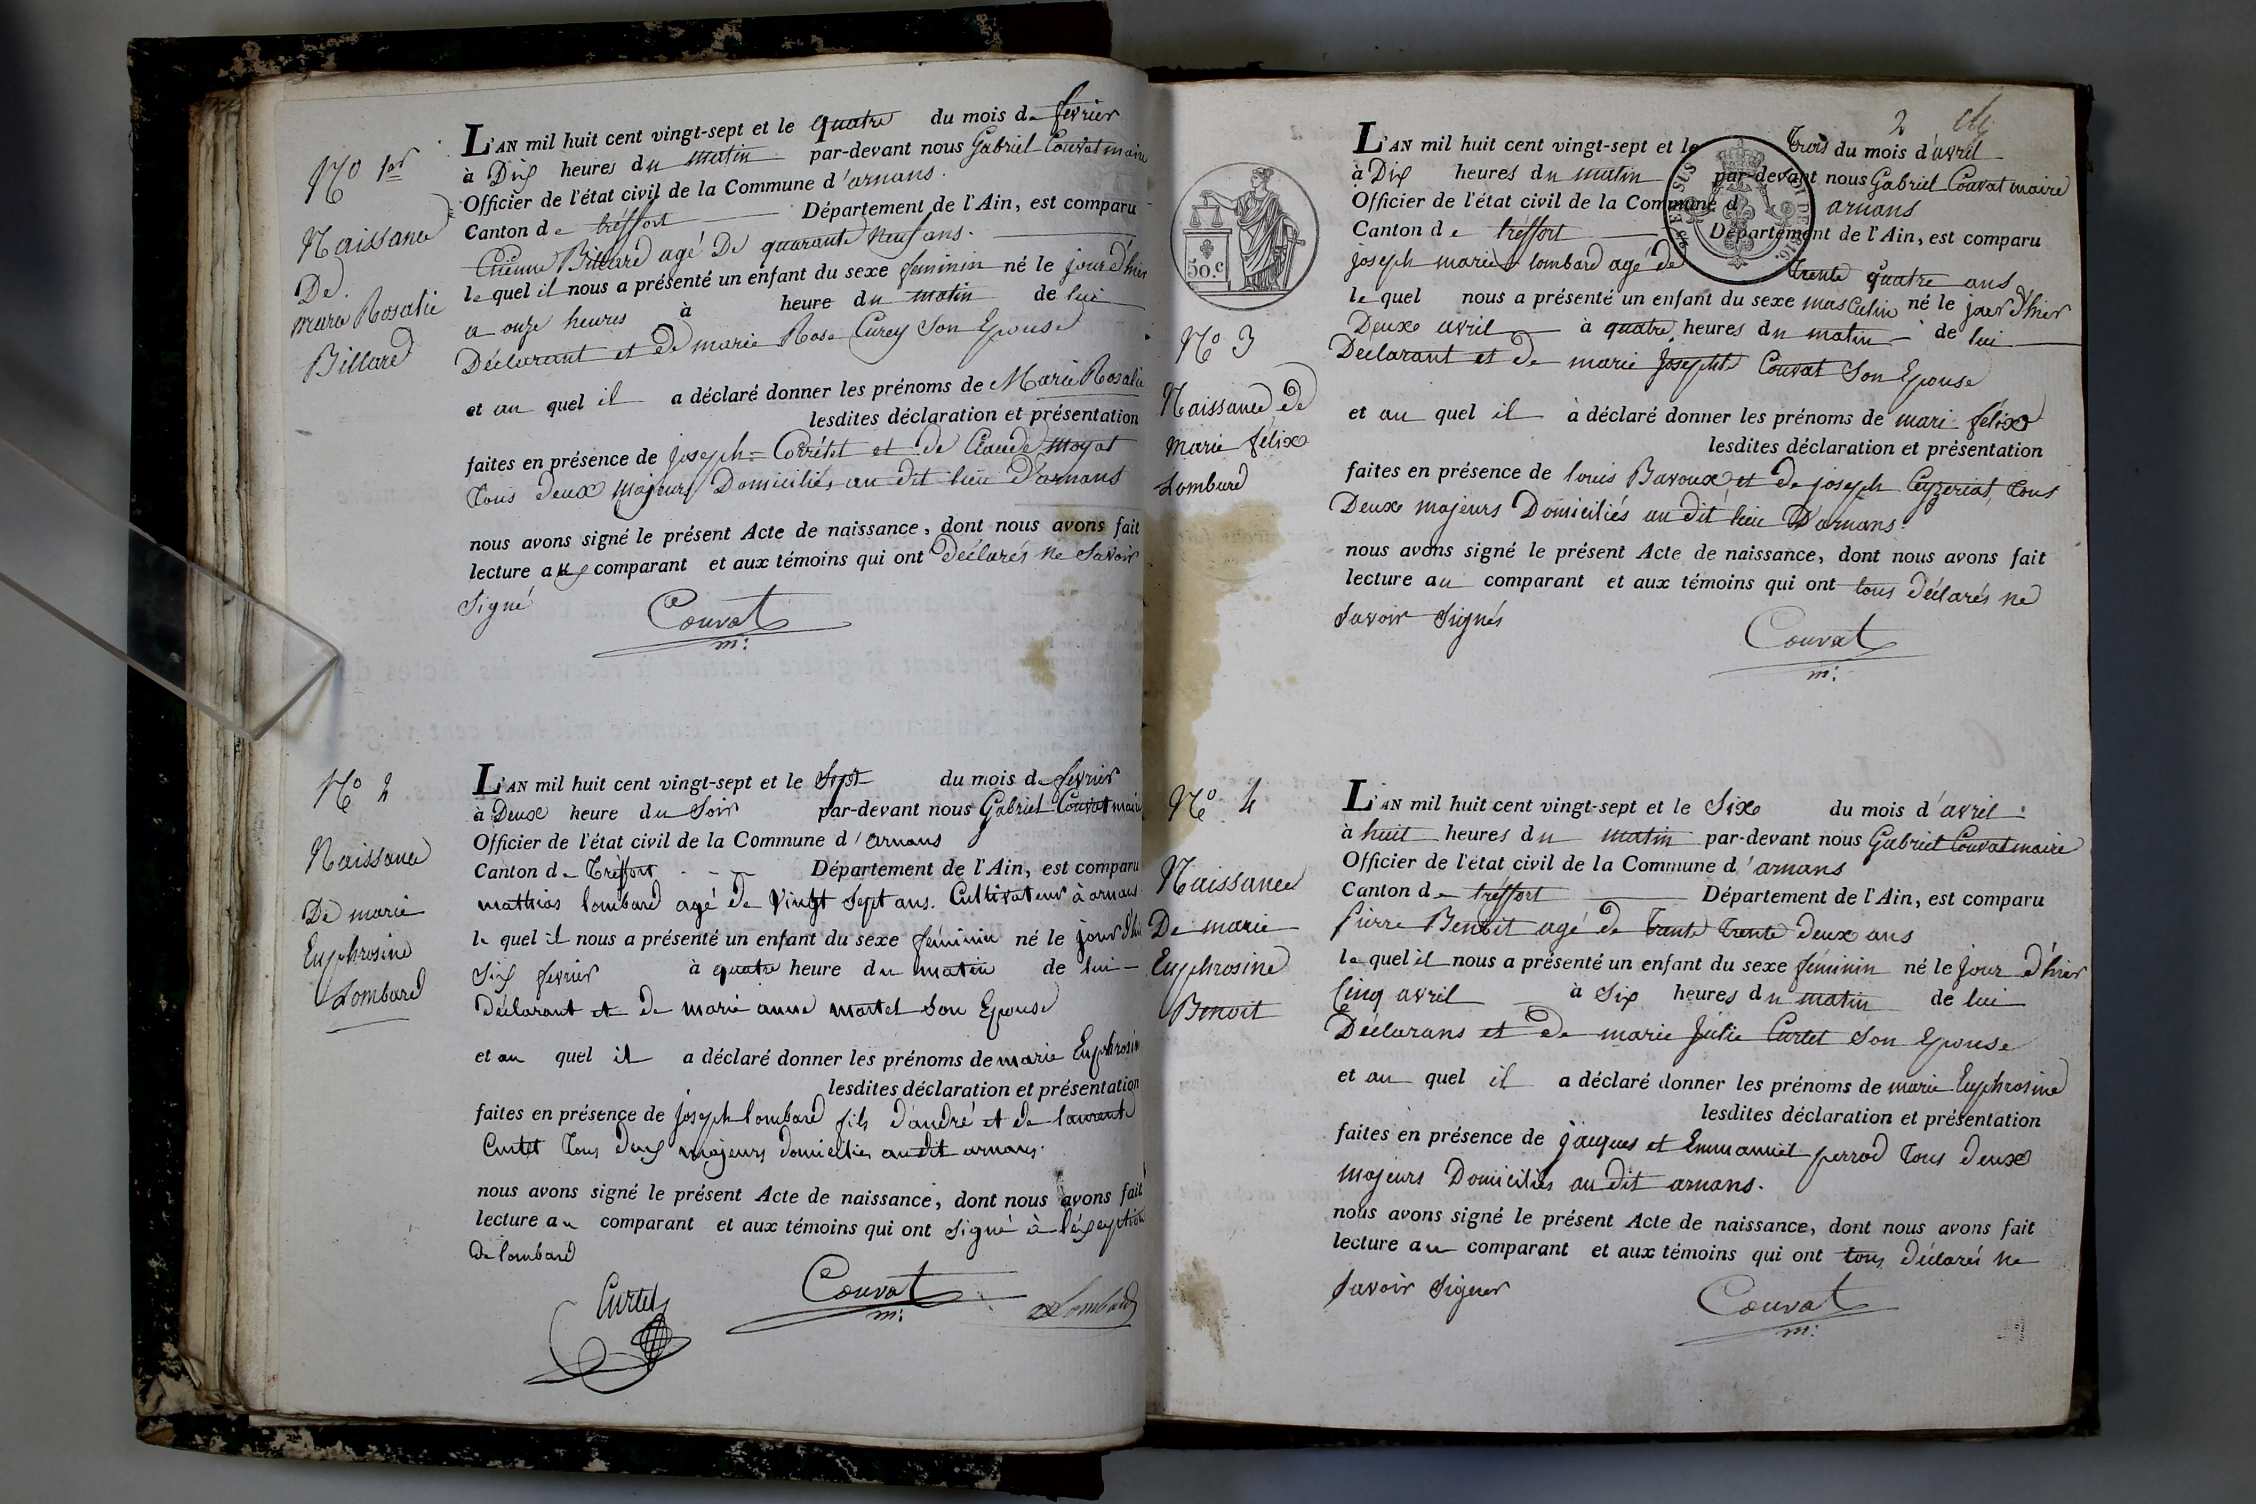 N.o 1er
Naissance
De
marie Rosalie
Billard
L'AN mil huit cent vingt-sept et le quatre du mois de fevrier
à Dix heures du matin par-devant nous Gabriel Couvat maire
Officier de l'état civil de la Commune d'arnans.
Canton de tréffort Département de l'Ain, est comparu
Billard agé De quarante neuf ans.
le quel il nous a présenté un enfant du sexe feminin né le jour d'hier
a onze heures à heure du matin de lui
Déclarant et de marie Rose Curey son Epouse
et au quel il a déclaré donner les prénoms de Marie Rosalie
lesdites déclaration et présentation
faites en présence de joseph et de Claude moyat
tous deux majeurs Domiciliés au dit lieu D'arnans
nous avons signé le présent Acte de naissance, dont nous avons fait
lecture aux comparant et aux témoins qui ont Déclarés ne Savoir
Signé
Couvat
m:
N.o 2
Naissance
De marie
Euphrosine
Lombard
L'AN mil huit cent vingt-sept et le Sept du mois de fevrier
à Deux heure du Soir par-devant nous Gabriel Couvat maire
Officier de l'état civil de la Commune d'arnans
Canton de Tréffort Département de l'Ain, est comparu
mathias lombard agé de Vingt Sept ans. Cultivateur à arnans
le quel il nous a présenté un enfant du sexe féminin né le jour d'hier
Six fevrier à quatre heure du matin de lui
déclarant et de marie anne martel son Epouse
et au quel il a déclaré donner les prénoms de marie Euphrosine
lesdites déclaration et présentation
faites en présence de joseph lombard fils d'andré et de laurent
Curtet tous deux majeurs domiciliés au dit arnans.
nous avons signé le présent Acte de naissance, dont nous avons fait
lecture au comparant et aux témoins qui ont signé à l'éxeption
de lombard
Curtet
Couvat
m:
Lombard
2
50.c
N.o 3
Naissance de
marie félix
Lombard
L'AN mil huit cent vingt-sept et le trois du mois d'avril
à Dix heures du matin par-devant nous Gabriel Couvat maire
Officier de l'état civil de la Commune d arnans
Canton de tréffort Département de l'Ain, est comparu
joseph marie lombard agé de trente quatre ans
le quel nous a présenté un enfant du sexe masculin né le jour d'hier
Deux avril à quatre heures du matin de lui
Déclarant et de marie josephte Couvat son Epouse
et au quel il à déclaré donner les prénoms de mari félix
lesdites déclaration et présentation
faites en présence de louis Bavoux et de joseph Ceyzeriat, tous
Deux majeurs Domiciliés au dit lieu D'arnans.
nous avons signé le présent Acte de naissance, dont nous avons fait
lecture au comparant et aux témoins qui ont tous déclarés ne
savoir signés
Couvat
m:
N.o 4
Naissance
De marie
Euphrosine
Benoit
L'AN mil huit cent vingt-sept et le Six du mois d'avril
à huit heures du matin par-devant nous Gabriel Couvat maire
Officier de l'état civil de la Commune d'arnans
Canton de tréffort Département de l'Ain, est comparu
pierre Benoit agé de trante trente deux ans
le quel il nous a présenté un enfant du sexe féminin né le jour d'hier
Cinq avril à Six heures du matin de lui
Déclarans et de marie julie Curtet son Epouse
et au quel il a déclaré donner les prénoms de marie Euphrosine
lesdites déclaration et présentation
faites en présence de jacques et Emmanuel perrod tous deux
majeurs Domiciliés au dit arnans.
nous avons signé le présent Acte de naissance, dont nous avons fait
lecture au comparant et aux témoins qui ont tous déclarés ne
savoir signer
Couvat
m: